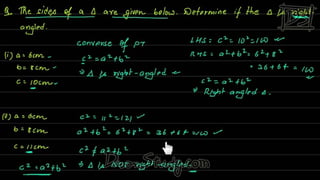 Q. The sides of a Δ are given below. Determine if the Δ is right-angled.
(i) a = 6cm
b = 8cm
c = 10cm
converse of PT
c² = a² + b²
⇒ Δ is right-angled
LHS: c² = 10² = 100
RHS = a² + b² = 6² + 8²
= 36 + 64 = 100
c² = a² + b²
⇒ Right angled Δ.
(ii) a = 6cm
b = 8cm
c = 11cm
c² = a² + b²
c² = 11² = 121
a² + b² = 6² + 8² = 36 + 64 = 100
c² ≠ a² + b²
⇒ Δ is not right-angled.